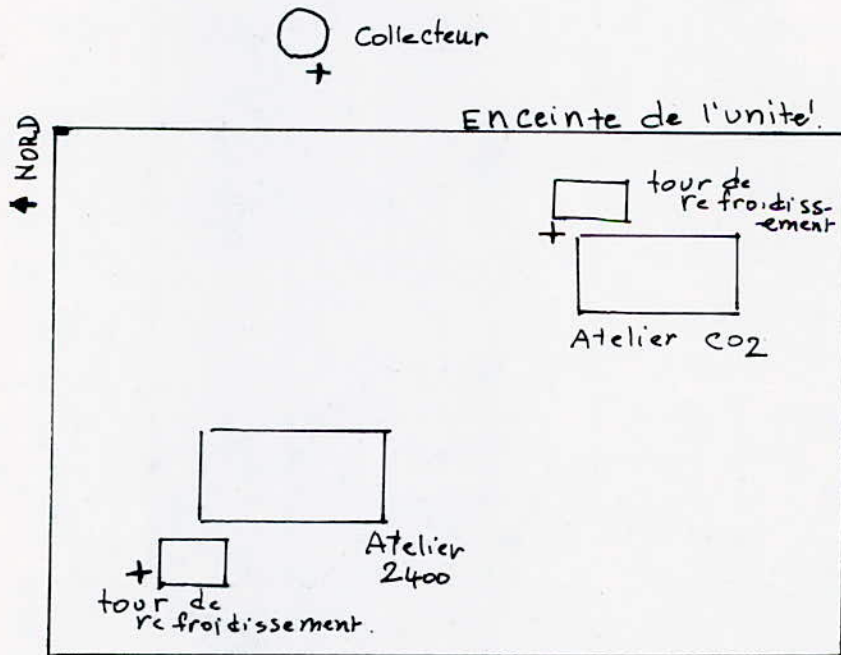 Collecteur
Enceinte de l'unité.
NORD
tour de
refroidiss-
ement
Atelier CO2
Atelier
2400
tour de
refroidissement.